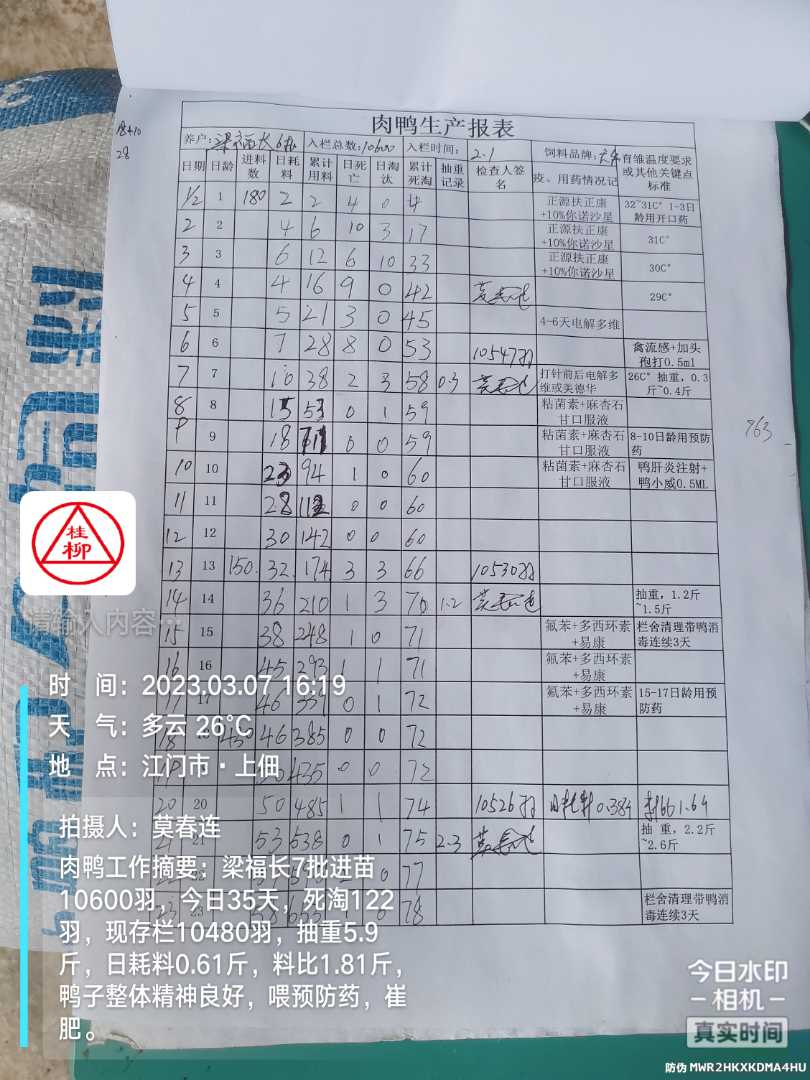 肉鸭生产报表
养户: 梁福长 6批 入栏总数: 10600 入栏时间: 2.1 饲料品牌: 育雏温度要求或其他关键点标准
日期 日龄 进料数 日耗料 累计用料 日死亡 日淘汰 累计死淘 抽重记录 检查人签名 疫、用药情况记
1/2 1 180 2 2 4 0 4 正源扶正康+10%你诺沙星 32~31C° 1-3日龄用开口药
2 2 4 6 10 3 17 正源扶正康+10%你诺沙星 31C°
3 3 6 12 6 10 33 正源扶正康+10%你诺沙星 30C°
4 4 4 16 9 0 42 29C°
5 5 5 21 3 0 45 4-6天电解多维
6 6 7 28 8 0 53 10547羽 禽流感+加头孢打0.5ml
7 7 10 38 2 3 58 0.3 打针前后电解多维或美德华 26C° 抽重，0.3斤~0.4斤
8 8 15 53 0 1 59 粘菌素+麻杏石甘口服液
9 9 18 71 0 0 59 粘菌素+麻杏石甘口服液 8-10日龄用预防药
10 10 23 94 1 0 60 粘菌素+麻杏石甘口服液 鸭肝炎注射+鸭小威0.5ML
11 11 28 112 0 0 60
12 12 30 142 0 0 60
13 13 150. 32. 174 3 3 66 10530羽
14 14 36 210 1 3 70 1.2 抽重，1.2斤~1.5斤
15 15 38 248 1 0 71 氟苯+多西环素+易康 栏舍清理带鸭消毒连续3天
16 16 45 293 1 1 71 氟苯+多西环素+易康
17 17 46 0 1 72 氟苯+多西环素+易康 15-17日龄用预防药
18 46 385 0 0 72
435 0 0 72
20 20 50 485 1 1 74 10526羽 日耗料0.384 料比1.64
21 21 53 538 0 1 75 2.3 抽 重，2.2斤~2.6斤
0 77
23 78 栏舍清理带鸭消毒连续3天
28
763
桂柳
请输入内容…
时 间：2023.03.07 16:19
天 气：多云 26℃
地 点：江门市·上佃
拍摄人：莫春连
肉鸭工作摘要：梁福长7批进苗
10600羽，今日35天，死淘122
羽，现存栏10480羽，抽重5.9
斤，日耗料0.61斤，料比1.81斤，
鸭子整体精神良好，喂预防药，崔
肥。
今日水印
-相机-
真实时间
防伪 MWR2HKXKDMA4HU